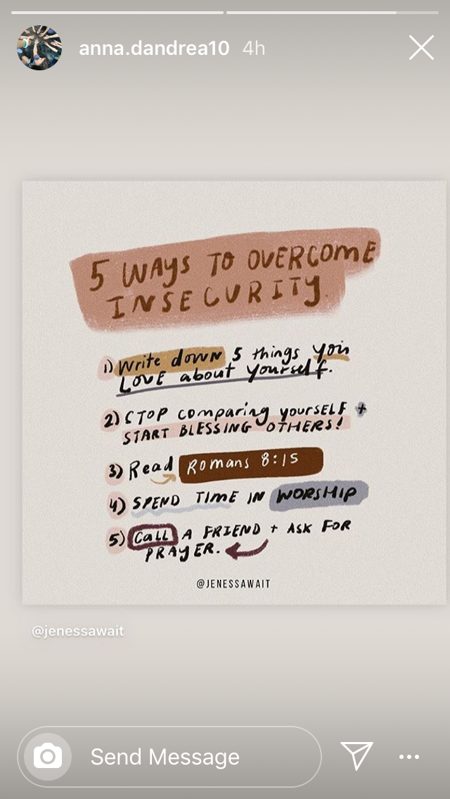 anna.dandrea10 4h
5 WAYS TO OVERCOME
INSECURITY.
1) Write down 5 things you
LOVE about yourself.
2) STOP comparing yourself +
START BLESSING OTHERS!
3) Read Romans 8:15
4) SPEND TIME IN WORSHIP
5) Call A FRIEND + ASK FOR
PRAYER.
@JENESSAWAIT
@jenessawait
Send Message